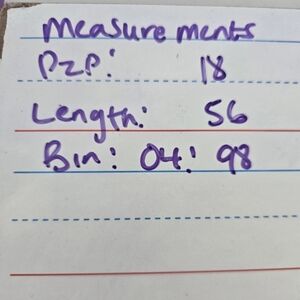 Measurements
P2P: 18
Length: 56
Bin: 04: 98